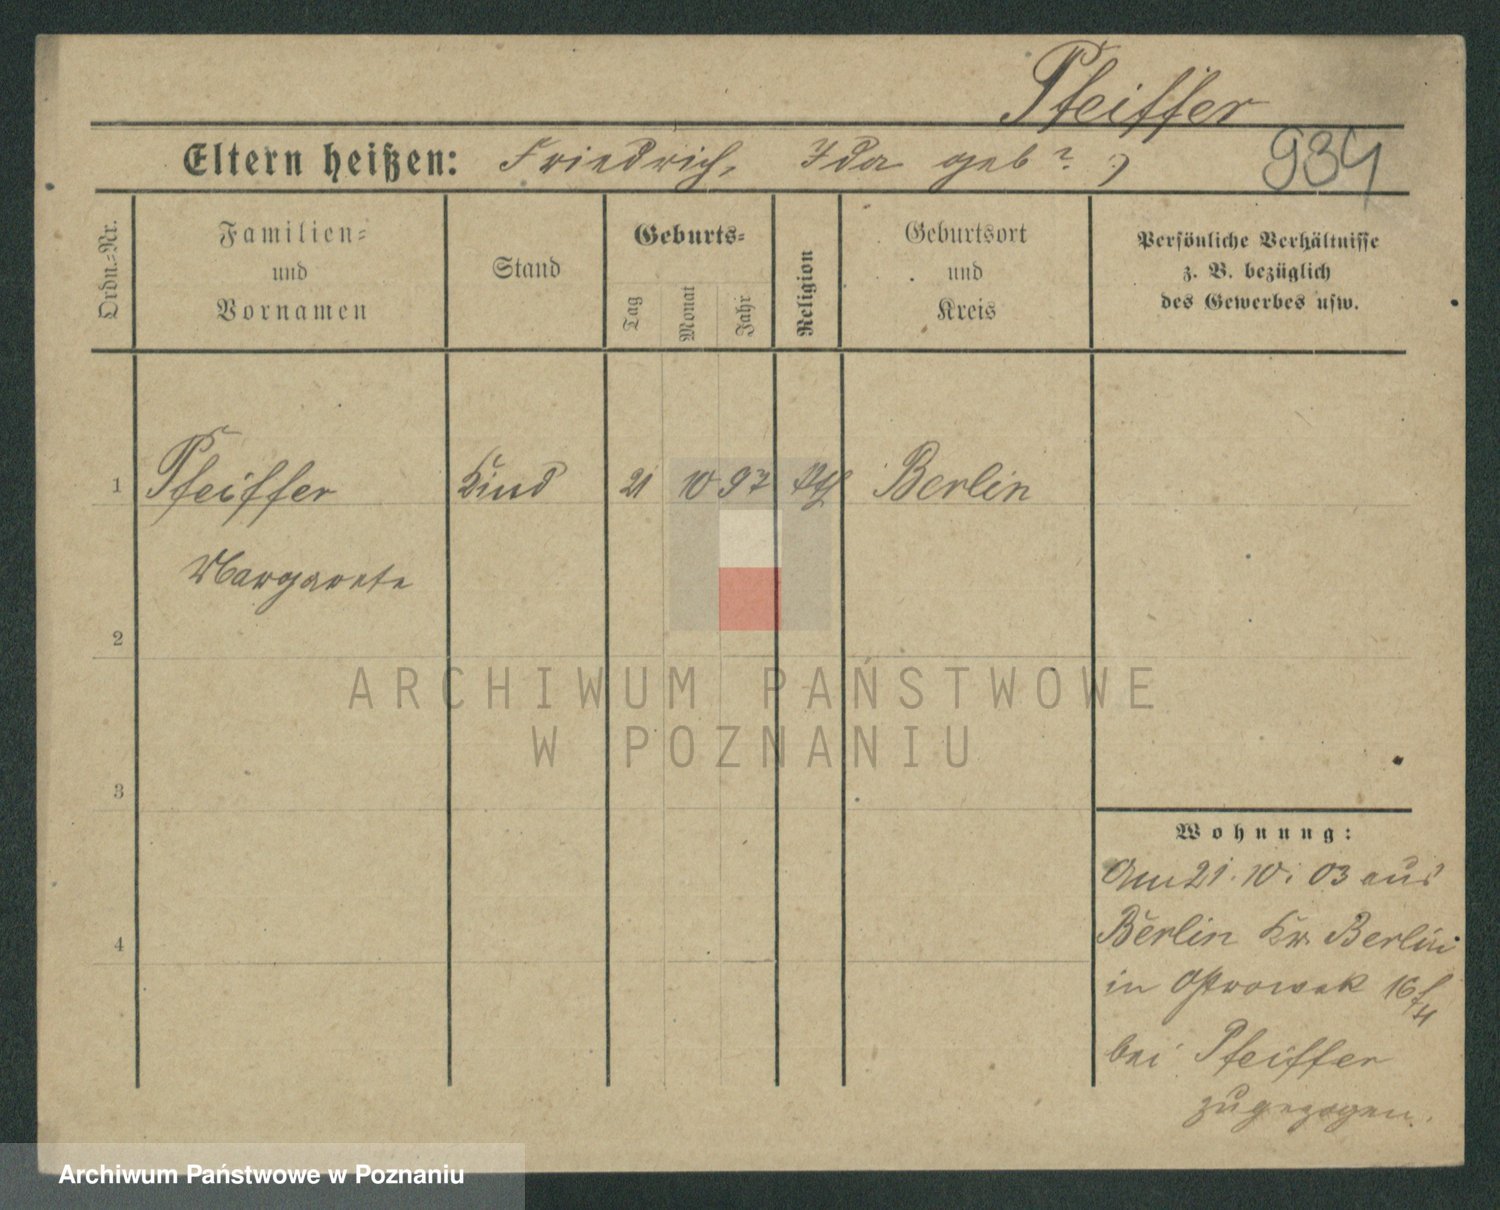 Pfeiffer
Eltern heißen: Friedrich, Ida geb ? )
934
Ordn.-Nr.
Familien-
und
Vornamen
Stand
Geburts-
Tag
Monat
Jahr
Religion
Geburtsort
und
Kreis
Persönliche Verhältnisse
z. B. bezüglich
des Gewerbes usw.
1 Pfeiffer Kind 21 10 97 Berlin
Margarete
2
3
4
Wohnung:
Am 21. 10. 03 aus
Berlin Kr. Berlin
in Ostrowek 16
bei Pfeiffer
zugezogen.
ARCHIWUM PAŃSTWOWE
W POZNANIU
Archiwum Państwowe w Poznaniu